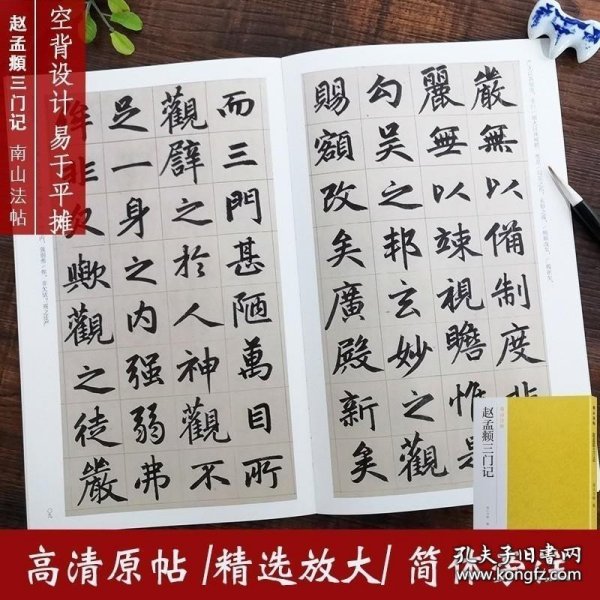 空背设计 易于平摊
赵孟頫三门记 南山法帖
嚴無以備制度非
麗無以竦視瞻惟是
勾吴之邦玄妙之觀
賜額改矣廣殿新矣
而三門甚陋萬目所
觀譬之於人神觀不
足一身之内强弱弗
侔非欠歟觀之徒嚴
赵孟頫三门记
高清原帖/精选放大/简体
孔夫子旧书网
www.kongfz.com